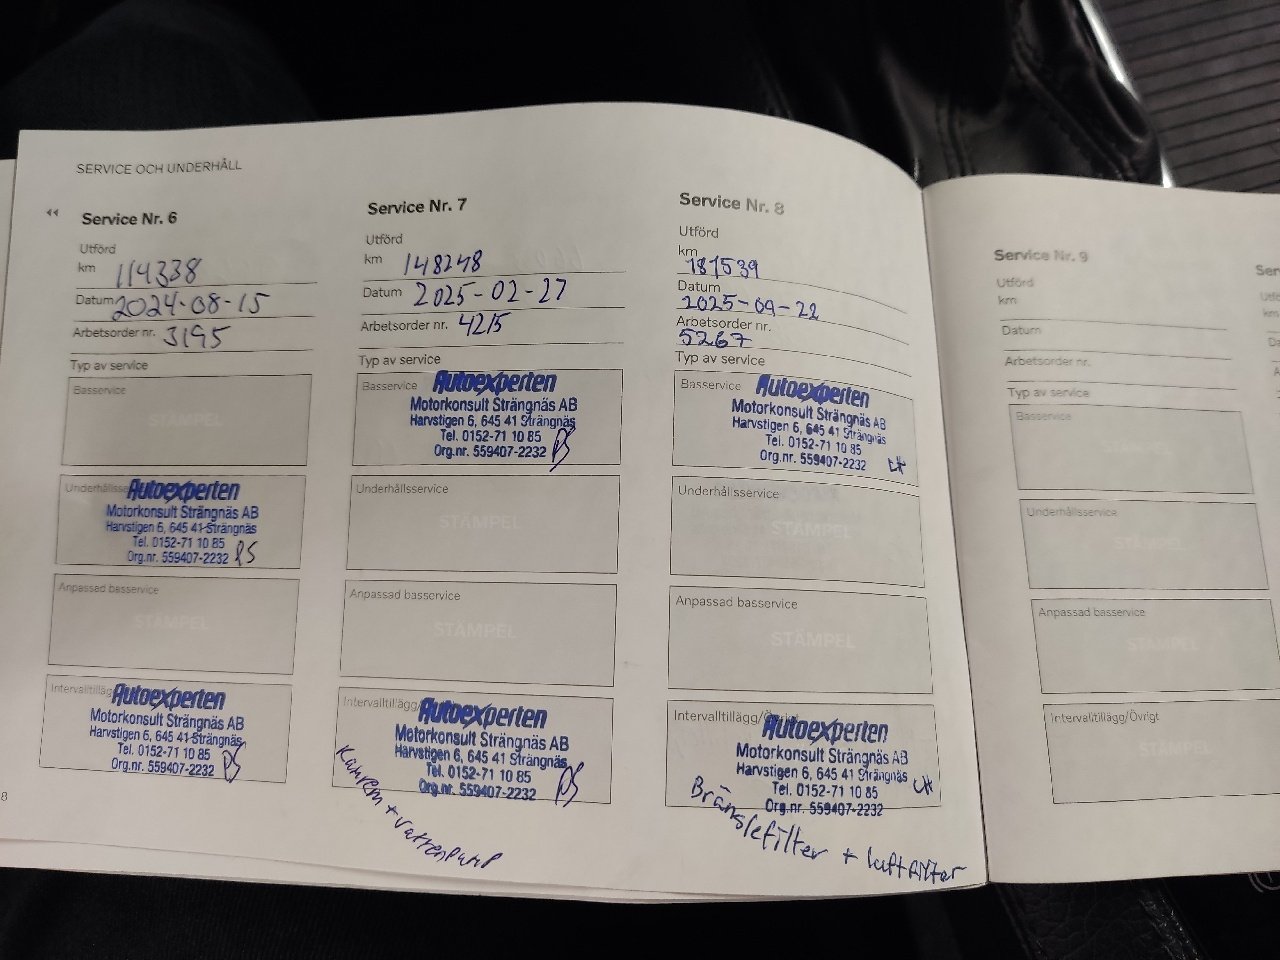 SERVICE OCH UNDERHÅLL
Service Nr. 6
Utförd
km 114338
Datum 2024-08-15
Arbetsorder nr. 3195
Typ av service
Basservice
STÄMPEL
Underhållsse
Autoexperten
Motorkonsult Strängnäs AB
Harvstigen 6, 645 41 Strängnäs
Tel. 0152-71 10 85
Org.nr. 559407-2232
Anpassad basservice
STÄMPEL
Intervalltilläg
Autoexperten
Motorkonsult Strängnäs AB
Harvstigen 6, 645 41 Strängnäs
Tel. 0152-71 10 85
Org.nr. 559407-2232
8
Service Nr. 7
Utförd
km 148248
Datum 2025-02-27
Arbetsorder nr. 4215
Typ av service
Basservice
Autoexperten
Motorkonsult Strängnäs AB
Harvstigen 6, 645 41 Strängnäs
Tel. 0152-71 10 85
Org.nr. 559407-2232
Underhållsservice
STÄMPEL
Anpassad basservice
STÄMPEL
Intervalltillägg/
Autoexperten
Motorkonsult Strängnäs AB
Harvstigen 6, 645 41 Strängnäs
Tel. 0152-71 10 85
Org.nr. 559407-2232
Kamrem + vattenpump
Service Nr. 8
Utförd
km
187539
Datum
2025-09-22
Arbetsorder nr.
5267
Typ av service
Basservice
Autoexperten
Motorkonsult Strängnäs AB
Harvstigen 6, 645 41 Strängnäs
Tel. 0152-71 10 85
Org.nr. 559407-2232
Underhållsservice
STÄMPEL
Anpassad basservice
STÄMPEL
Intervalltillägg/Övrigt
Autoexperten
Motorkonsult Strängnäs AB
Harvstigen 6, 645 41 Strängnäs
Tel. 0152-71 10 85
Org.nr. 559407-2232
Bränslefilter + luftfilter
Service Nr. 9
Utförd
km
Datum
Arbetsorder nr.
Typ av service
Basservice
STÄMPEL
Underhållsservice
STÄMPEL
Anpassad basservice
STÄMPEL
Intervalltillägg/Övrigt
STÄMPEL
Ser